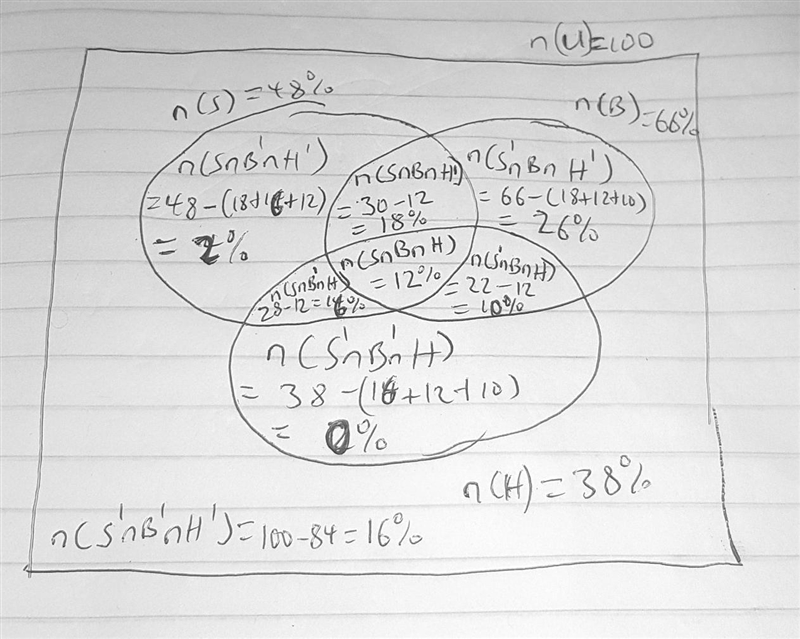 n(U)=100
n(S)=48%
n(B)=66%
n(S∩B'∩H')
=48-(18+16+12)
= 2%
n(S∩B∩H')
=30-12
=18%
n(S'∩B∩H')
=66-(18+12+10)
= 26%
n(S∩B∩H)
=12%
n(S∩B'∩H)
28-12=16%
n(S'∩B∩H)
=22-12
=10%
n(S'∩B'∩H)
= 38-(16+12+10)
= 0%
n(H)=38%
n(S'∩B'∩H')=100-84=16%